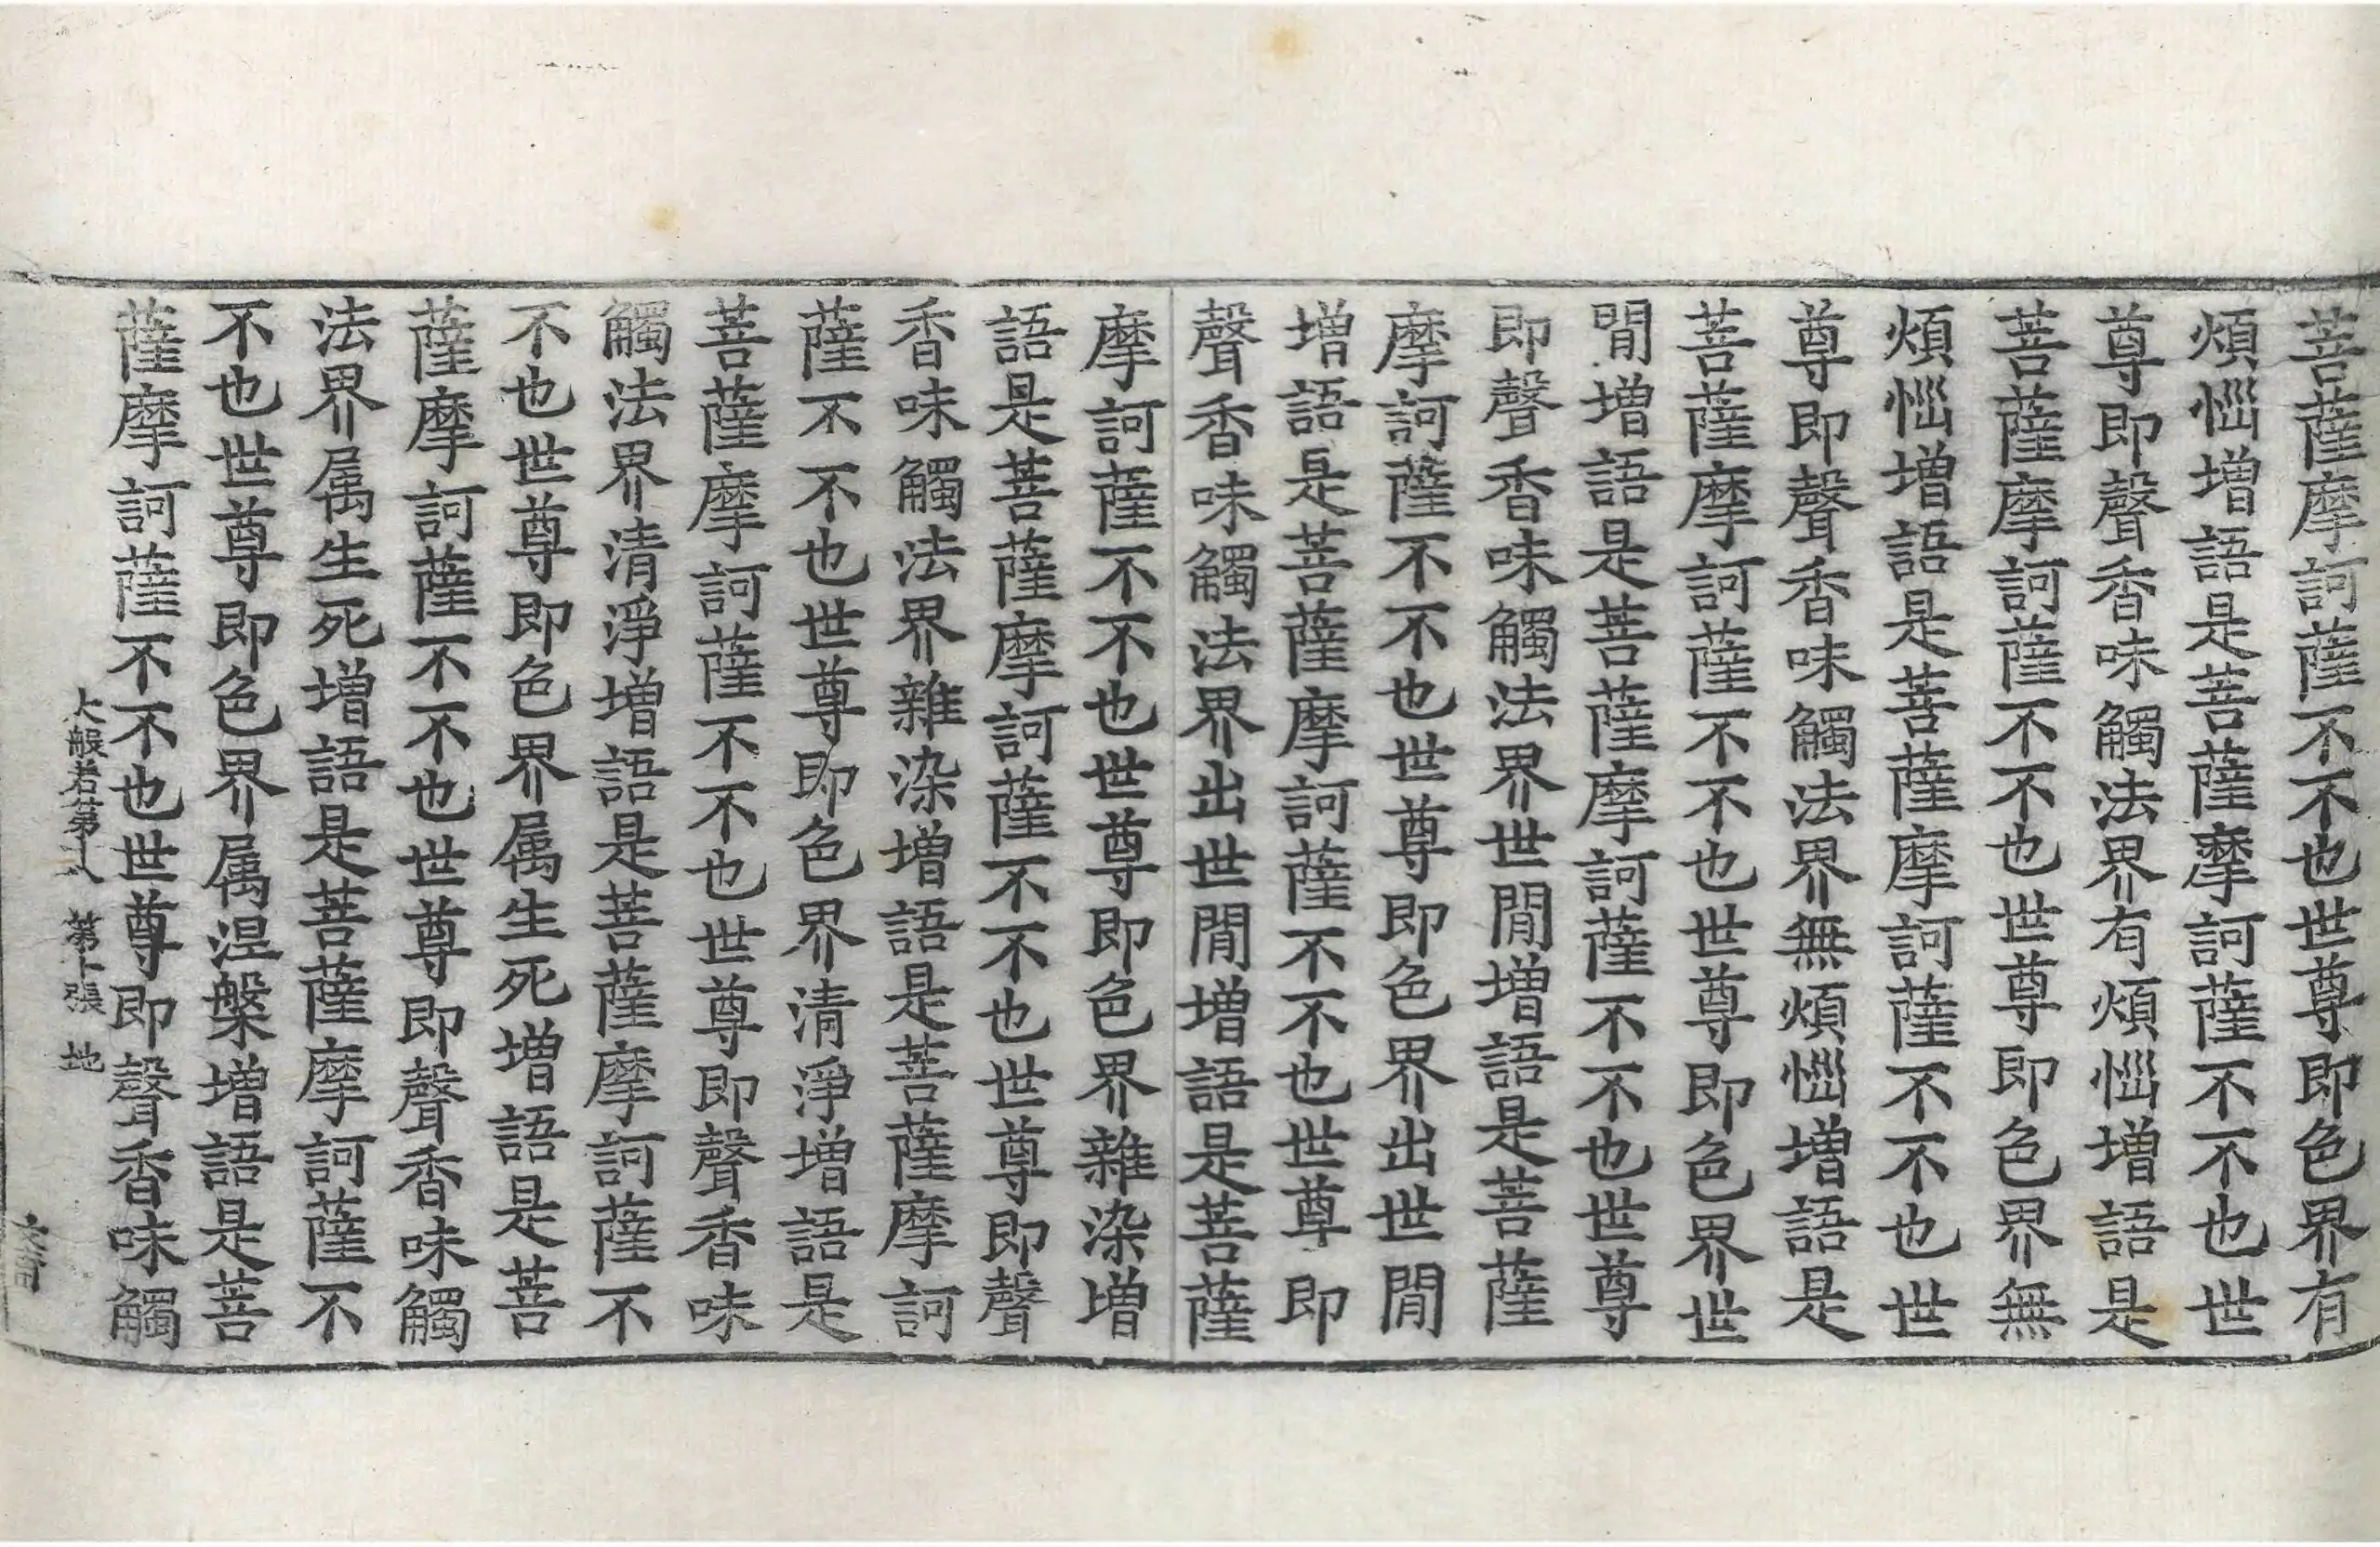 菩薩摩訶薩不不也世尊即色界有
煩惱增語是菩薩摩訶薩不不也世
尊即聲香味觸法界有煩惱增語是
菩薩摩訶薩不不也世尊即色界無
煩惱增語是菩薩摩訶薩不不也世
尊即聲香味觸法界無煩惱增語是
菩薩摩訶薩不不也世尊即色界世
閒增語是菩薩摩訶薩不不也世尊
即聲香味觸法界世閒增語是菩薩
摩訶薩不不也世尊即色界出世閒
增語是菩薩摩訶薩不不也世尊即
聲香味觸法界出世閒增語是菩薩
摩訶薩不不也世尊即色界雜染增
語是菩薩摩訶薩不不也世尊即聲
香味觸法界雜染增語是菩薩摩訶
薩不不也世尊即色界清淨增語是
菩薩摩訶薩不不也世尊即聲香味
觸法界清淨增語是菩薩摩訶薩不
不也世尊即色界属生死增語是菩
薩摩訶薩不不也世尊即聲香味觸
法界属生死增語是菩薩摩訶薩不
不也世尊即色界属涅槃增語是菩
薩摩訶薩不不也世尊即聲香味觸
大般若第 第 張 地